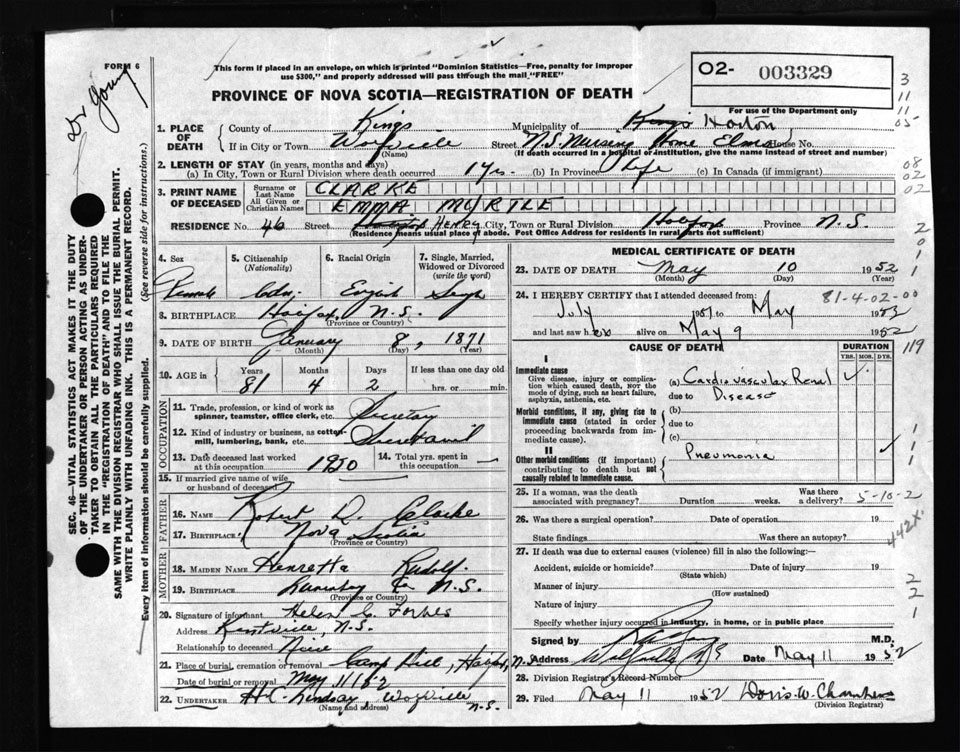 FORM 6
Dr Young
This form if placed in an envelope, on which is printed "Dominion Statistics—Free, penalty for improper
use $300," and properly addressed will pass through the mail "FREE"
O2- 003329
For use of the Department only
PROVINCE OF NOVA SCOTIA—REGISTRATION OF DEATH
3
11
11
05
08
02
02
2
0
1
1
119
1
1
1
442X
2
2
1
1. PLACE OF DEATH
County of Kings Municipality of Kings Horton
If in City or Town Wolfville Street N.S. Nursing Home Elms House No.
(Name) (If death occurred in a hospital or institution, give the name instead of street and number)
2. LENGTH OF STAY (in years, months and days)
(a) In City, Town or Rural Division where death occurred 1 yr. (b) In Province Life (c) In Canada (if immigrant)
3. PRINT NAME OF DECEASED
Surname or Last Name CLARKE
All Given or Christian Names EMMA MYRTLE
RESIDENCE No. 46 Street HENRY City, Town or Rural Division Halifax Province N.S.
(Residence means usual place of abode. Post Office Address for residents in rural parts not sufficient)
4. Sex
5. Citizenship (Nationality)
6. Racial Origin
7. Single, Married, Widowed or Divorced (write the word)
Female Cdn. English Single
8. BIRTHPLACE Halifax, N.S.
(Province or Country)
9. DATE OF BIRTH January 8, 1871
(Month) (Day) (Year)
10. AGE in Years 81 Months 4 Days 2 If less than one day old hrs. or min.
OCCUPATION
11. Trade, profession, or kind of work as spinner, teamster, office clerk, etc. Secretary
12. Kind of industry or business, as cotton mill, lumbering, bank, etc.
13. Date deceased last worked at this occupation 1950 14. Total yrs. spent in this occupation —
15. If married give name of wife or husband of deceased
FATHER
16. NAME Robert D. Clarke
17. BIRTHPLACE Nova Scotia
(Province or Country)
MOTHER
18. MAIDEN NAME Henrietta Rudolf
19. BIRTHPLACE Lunenburg Co N.S.
(Province or Country)
20. Signature of informant Helen C. Forbes
Address Kentville, N.S.
Relationship to deceased Niece
21. Place of burial, cremation or removal Camp Hill, Halifax, N.S.
Date of burial or removal May 11/52
22. UNDERTAKER H.C. Lindsay, Wolfville N.S.
(Name and address)
MEDICAL CERTIFICATE OF DEATH
23. DATE OF DEATH May 10 1952
(Month) (Day) (Year)
24. I HEREBY CERTIFY that I attended deceased from: 81-4-02-00
July 1951 to May 1952
and last saw her alive on May 9 1952
CAUSE OF DEATH DURATION
YRS. MOS. DYS.
I
Immediate cause
Give disease, injury or complication which caused death, NOT the mode of dying, such as heart failure, asphyxia, asthenia, etc.
(a) Cardio vascular Renal
due to Disease
Morbid conditions, if any, giving rise to immediate cause (stated in order proceeding backwards from immediate cause).
(b)
due to
(c)
II
Other morbid conditions (if important) contributing to death but not causally related to immediate cause.
Pneumonia
25. If a woman, was the death associated with pregnancy? Duration weeks. Was there a delivery? 5-10-2
26. Was there a surgical operation? Date of operation 19
State findings Was there an autopsy?
27. If death was due to external causes (violence) fill in also the following:—
Accident, suicide or homicide? Date of injury 19
(State which)
Manner of injury
(How sustained)
Nature of injury
Specify whether injury occurred in industry, in home, or in public place
Signed by M.D.
Address Wolfville NS Date May 11 1952
28. Division Registrar's Record Number
29. Filed May 11 1952 Doris W. Chambers
(Division Registrar)
SEC. 46—VITAL STATISTICS ACT MAKES IT THE DUTY
OF THE UNDERTAKER OR PERSON ACTING AS UNDER-
TAKER TO OBTAIN ALL THE PARTICULARS REQUIRED
IN THE "REGISTRATION OF DEATH" AND TO FILE THE
SAME WITH THE DIVISION REGISTRAR WHO SHALL ISSUE THE BURIAL PERMIT.
WRITE PLAINLY WITH UNFADING INK. THIS IS A PERMANENT RECORD.
Every item of information should be carefully supplied. (See reverse side for instructions.)